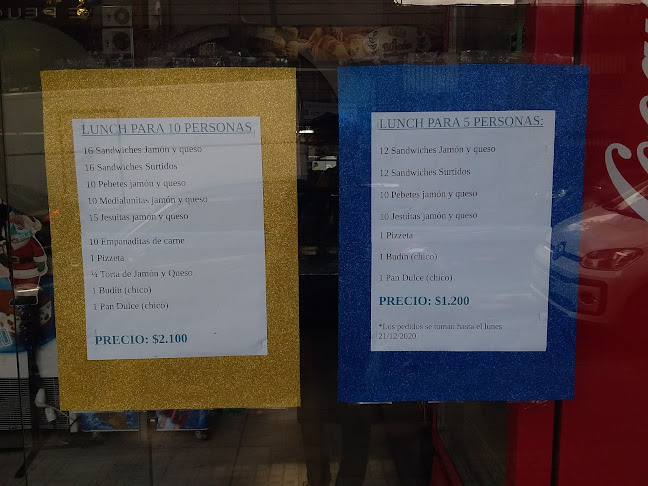 LUNCH PARA 10 PERSONAS
16 Sandwiches Jamón y queso
16 Sandwiches Surtidos
10 Pebetes jamón y queso
10 Medialunitas jamón y queso
15 Jesuitas jamón y queso
10 Empanaditas de carne
1 Pizzeta
¼ Torta de Jamón y Queso
1 Budín (chico)
1 Pan Dulce (chico)
PRECIO: $2.100
LUNCH PARA 5 PERSONAS:
12 Sandwiches Jamón y queso
12 Sandwiches Surtidos
10 Pebetes jamón y queso
10 Jesuitas jamón y queso
1 Pizzeta
1 Budín (chico)
1 Pan Dulce (chico)
PRECIO: $1.200
*Los pedidos se toman hasta el lunes
21/12/2020